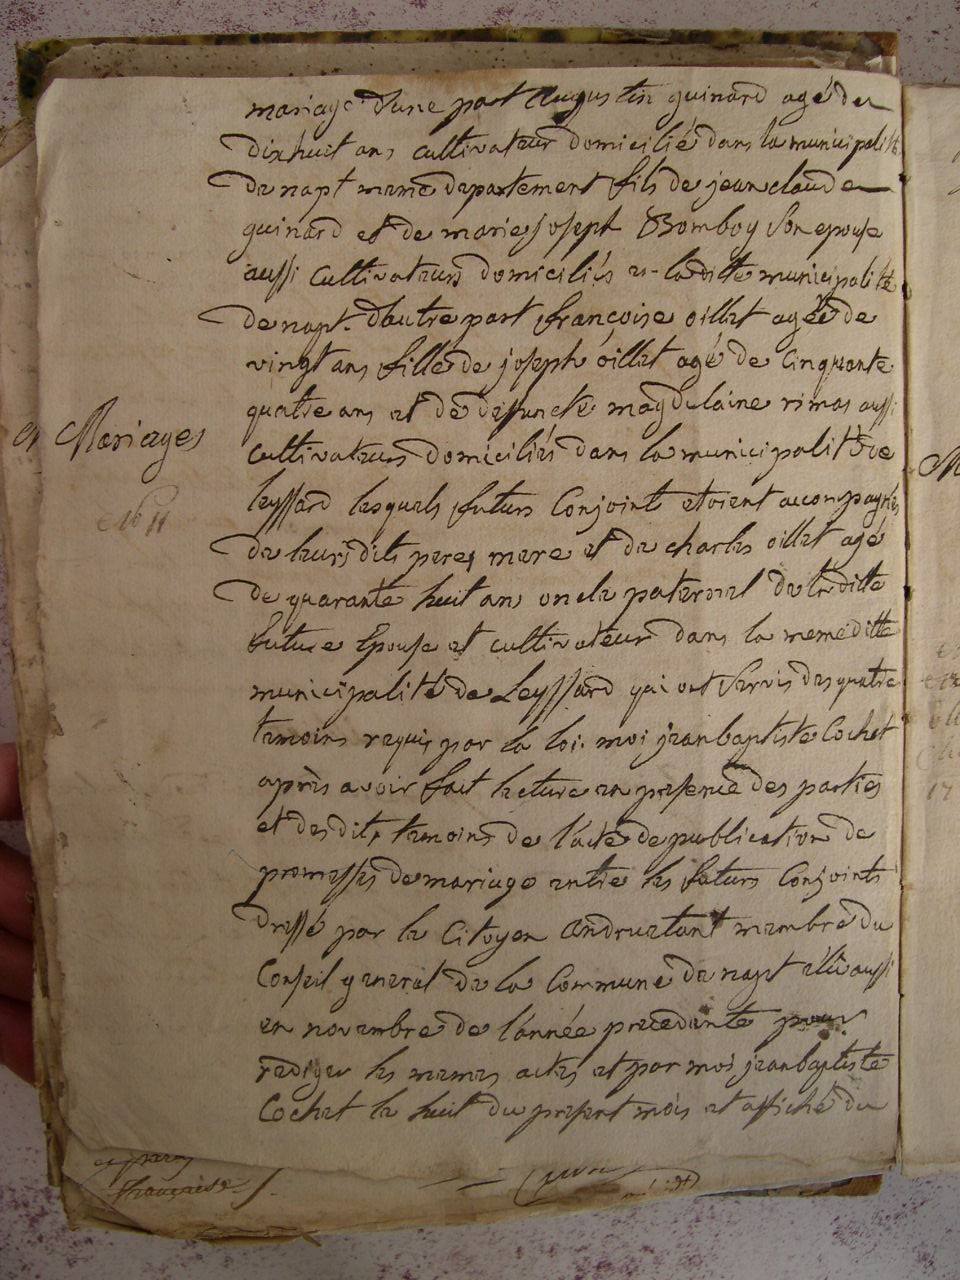 mariage d'une part Augustin guinard agé de
dixhuit ans cultivateur domicilié dans la municipalité
de napt meme departement fils de jean claude
guinard et de marie joseph Bomboy son epouse
aussi cultivateurs domiciliés es-laditte municipalité
de napt. d'autre part françoise oillet agéé de
vingt ans fille de joseph oillet agé de cinquante
quatre ans et de deffuncte magdelaine rimas aussi
Mariages
cultivateurs domiciliés dans la municipalité de
leyssard lesquels futurs conjoint etoient accompagnés
de leursdits pere, mere et de charles oillet agé
de quarante huit ans oncle paternel de laditte
future Epouse et cultivateur dans la meme ditte
municipalité de Leyssard qui ont servis des quatre
temoins requis par la loi. moi jean baptiste Cochet
après avoir fait lecture en presence des parties
et desdits temoins de l'acte de publication de
promesses de mariage entre les futurs Conjoints
dressé par le Citoyen andruetant membre du
Conseil general de la Commune de napt élu aussi
en novembre de l'année precedente pour
rediger les memes actes et par moi jean baptiste
Cochet le huit du present mois et affiché du
françoise